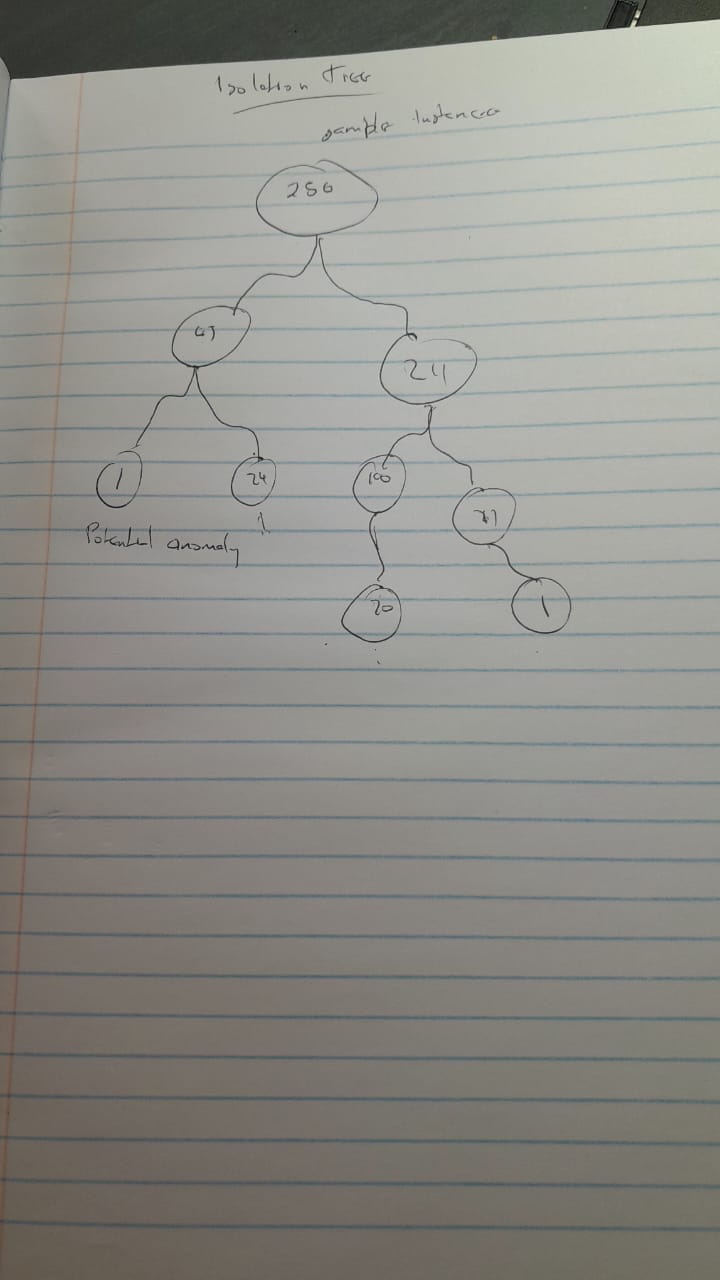 Isolation Tree
sample instance
256
45
211
1
24
100
71
Potential anomaly
1
20
1